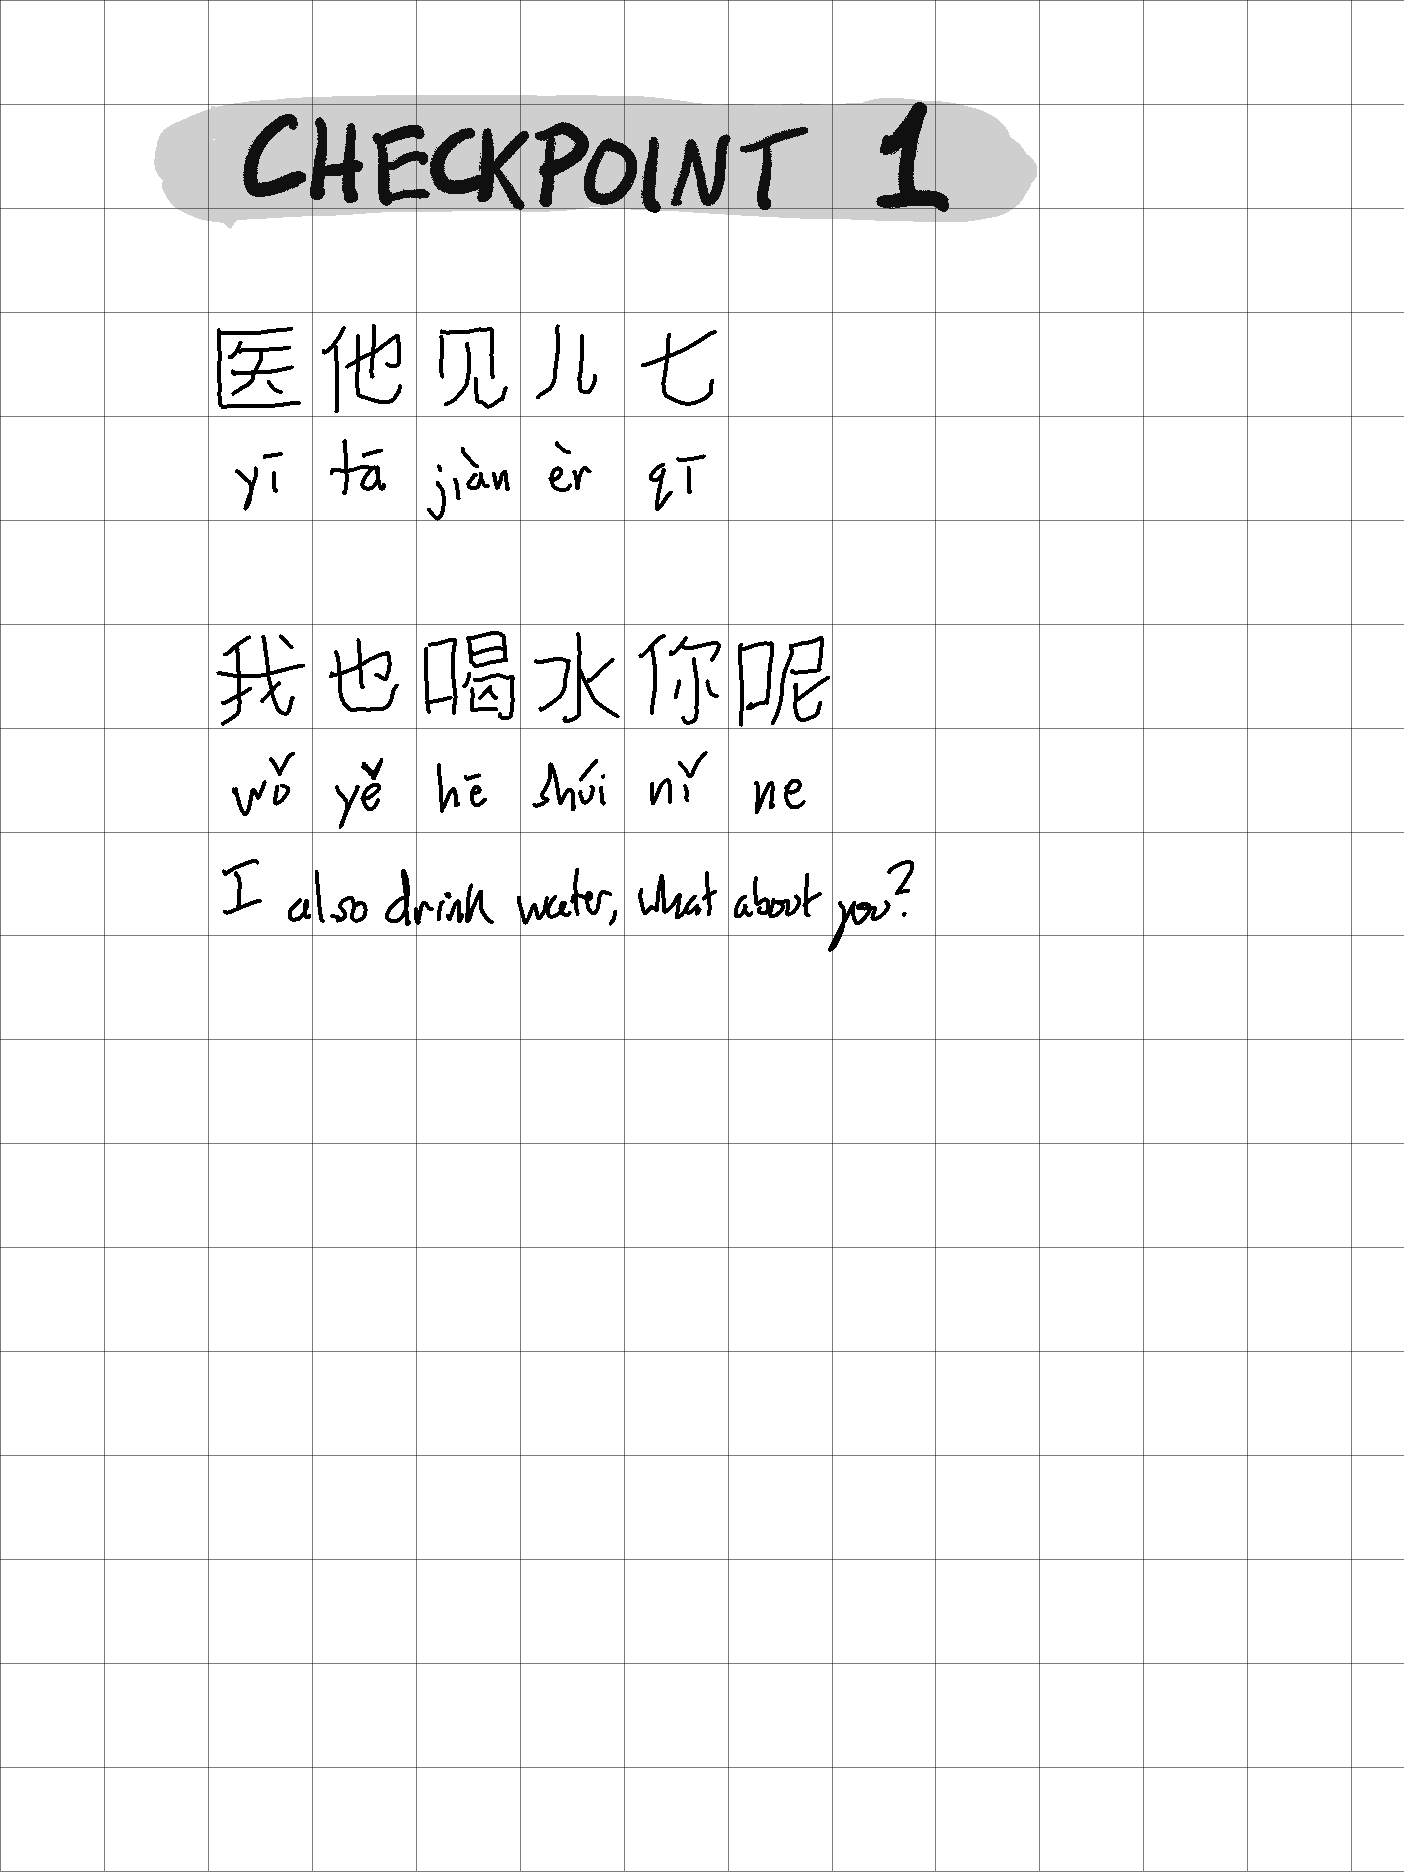 CHECKPOINT 1
医他见儿七
yī tā jiàn èr qī
我也喝水你呢
wǒ yě hē shúi nǐ ne
I also drink water, what about you?